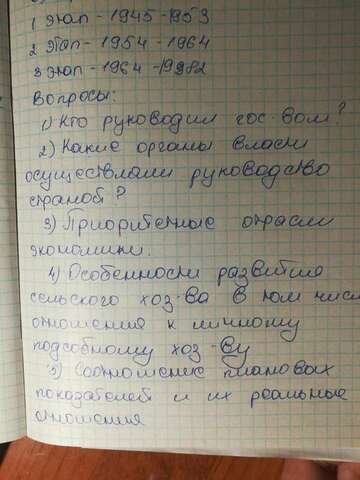 1 этап - 1945 - 1953
2 этап - 1954 - 1964
3 этап - 1964 - 1982
Вопросы:
1) Кто руководил гос-вом?
2) Какие органы власти
осуществляли руководство
страной?
3) Приоритетные отрасли
экономики.
4) Особенности развития
сельского хоз-ва в том числ
отношения к личному
подсобному хоз-ву
5) Соотношение плановых
показателей и их реальные